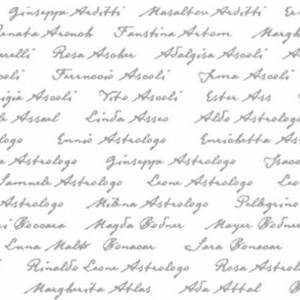 Giuseppe Arditti Masaltou Arditti
Renata Aronoh Faustina Artom Margh
arelli Rosa Ascher Adalgisa Ascoli
coli Ferruccio Ascoli Irma Ascoli
igia Ascoli Vito Ascoli Ester Ass
Assael Linda Asseo Aldo Astrologo
logo Ennio Astrologo Enrichetta Ast
Astrologo Giuseppa Astrologo Isac
Samuele Astrologo Leone Astrologo
Astrologo Milena Astrologo Pellegrino
Boccara Magda Bodner Mayer Bodner
Bonacar Sara Bonacar
Rinaldo Leone Astrologo Rosa Astro
Margherita Atlas Ada Attal